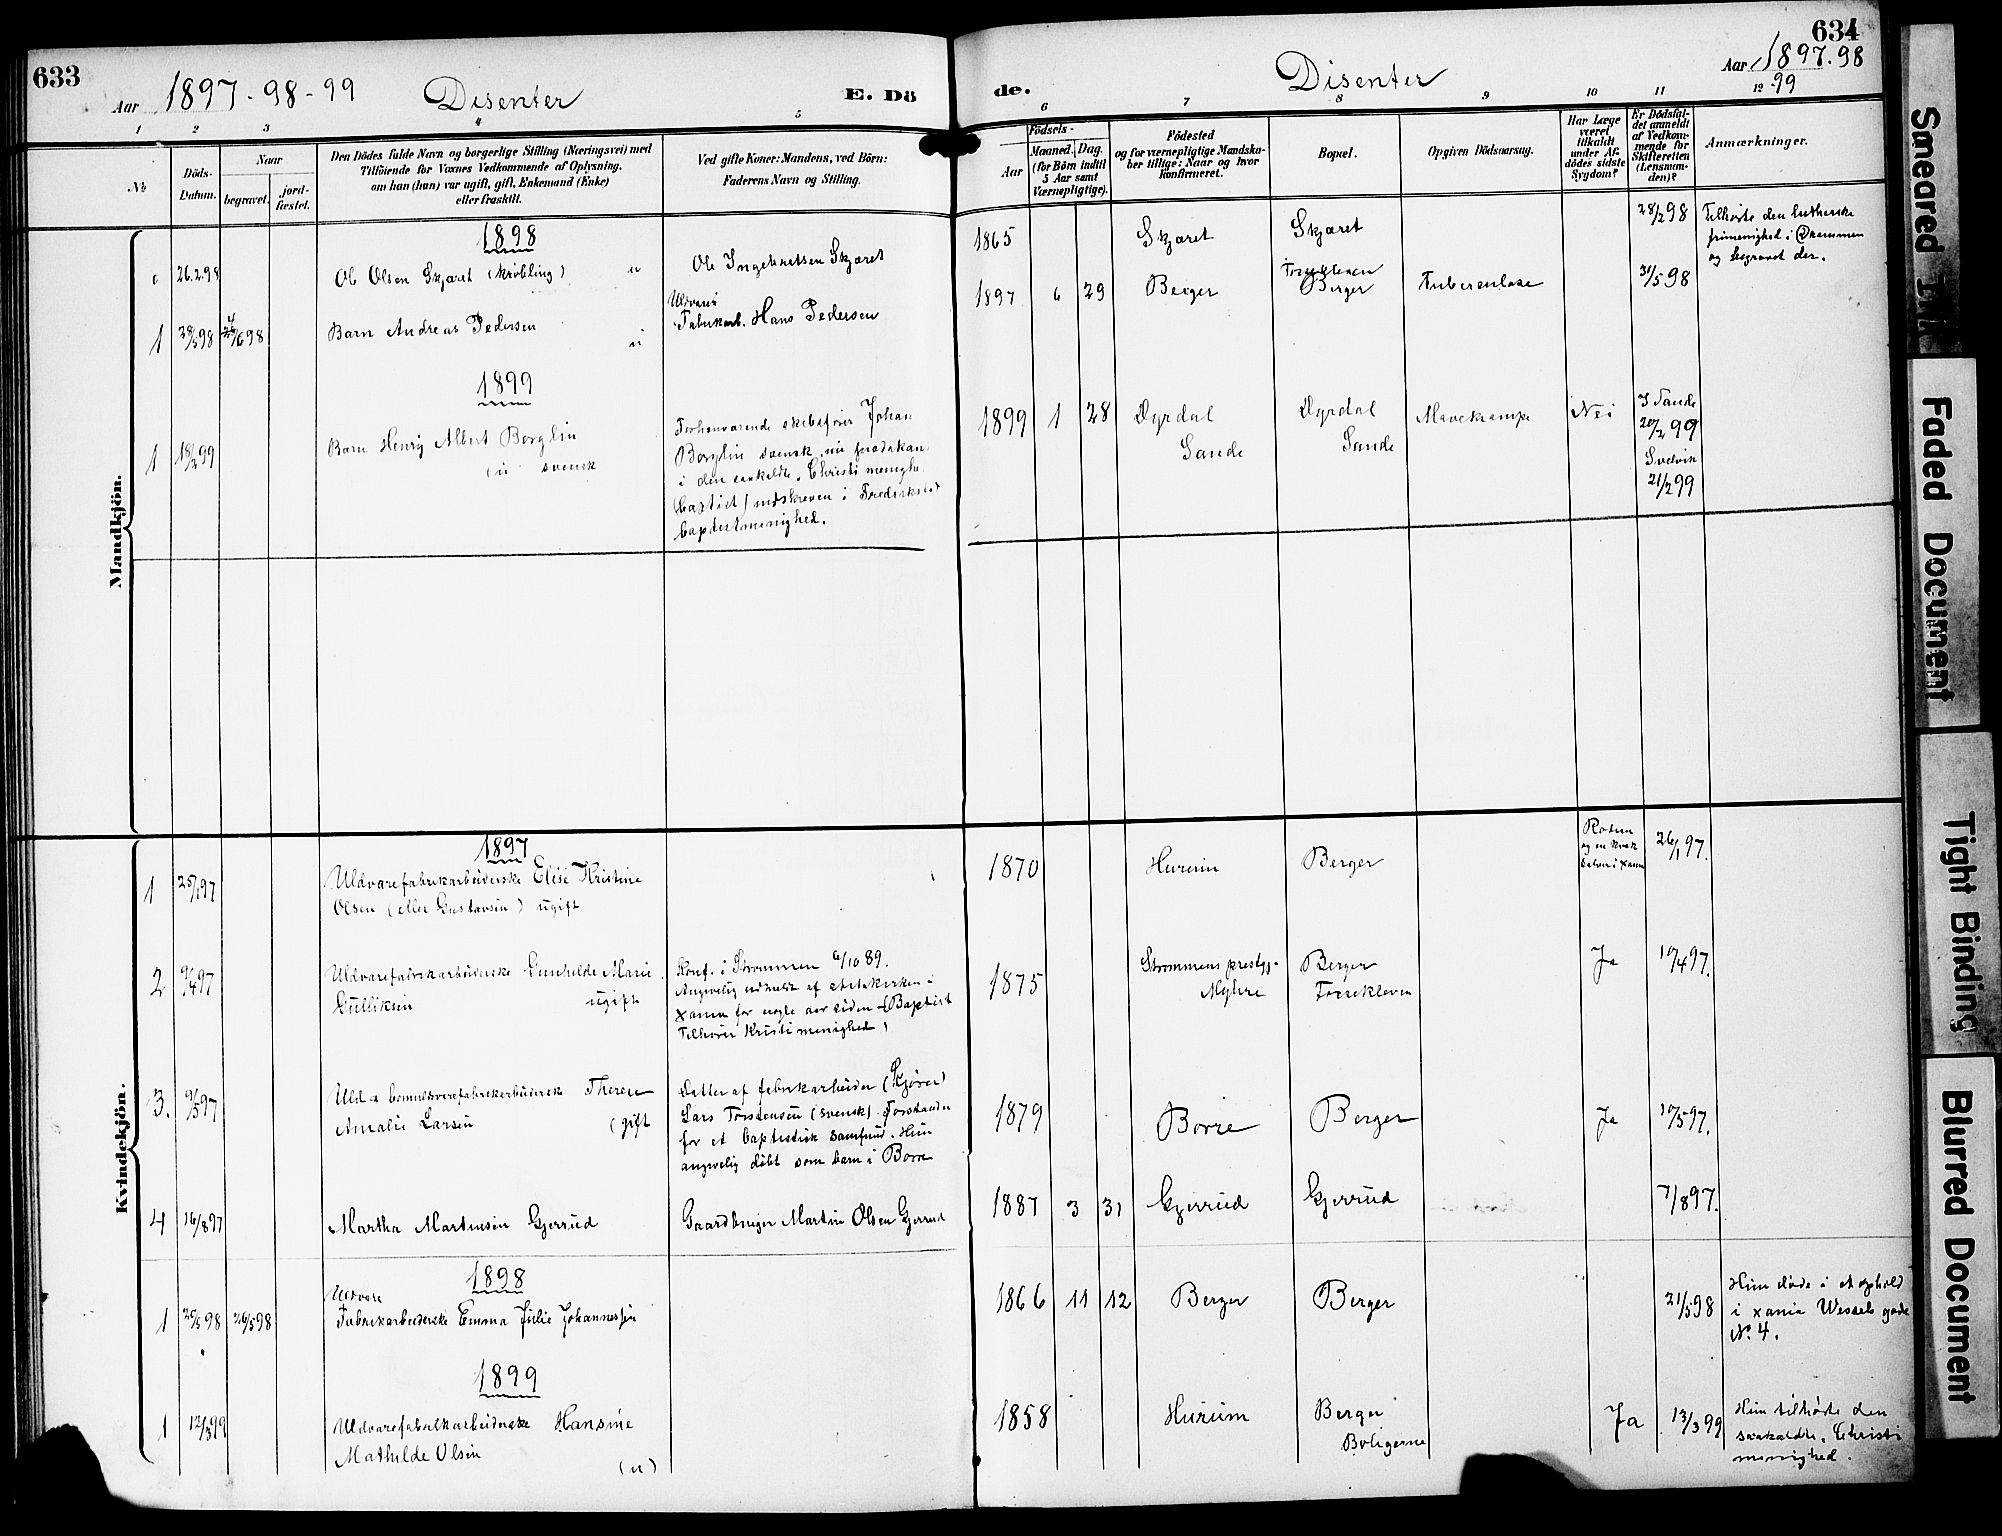 633
Aar 1897-98-99
Disenter
E. Dö
1 2 3 4 5
№
Döds-
Datum.
Naar
begravet.
jord-
fæstet.
Den Dödes fulde Navn og borgerlige Stilling (Næringsvei) med
Tilföiende for Voxnes Vedkommende af Oplysning,
om han (hun) var ugift, gift, Enkemand (Enke)
eller fraskilt.
Ved gifte Koner: Mandens, ved Börn:
Faderens Navn og Stilling.
Mandkjön.
1898
26.2.98
Ole Olsen Skjæret (Krøbling) u
Ole Ingebretsen Skjæret
1 28/5 98 4/6 98
Barn Andreas Pedersen u
Uldvare
Fabrikarb. Hans Pedersen
1899
1 18/2 99
Barn Henry Albert Borglin
(u svensk
Forhenværende skibsfører Johan
Borglin svensk, nu prædikan
i den saakaldte Christi menighe
(baptist) indskreven i Fredrikstad
baptistmenighed.
Kvindekjön.
1897
1 25/1 97
Uldvarefabrikarbeiderske Elise Kristine
Olsen (eller Gustavsen) ugift
2 9/4 97
Uldvarefabrikarbeiderske Gunhilde Marie
Gulliksen ugift
Konf. i Strømmen 6/10 89.
Angivelig udmeldt af statskirken i
Xania for nogle aar siden (Baptist
Tilhører Kristi menighed)
3. 9/5 97
Uld- & bomuldsvarefabrikarbeiderske Therese
Amalie Larsen (gift
Datter af fabrikarbeider (Kjører)
Lars Torstensen (svensk) Forstander
for et baptistisk samfund. Hun
angivelig døbt som barn i Borre
4 16/8 97
Martha Martinsen Gjerrud
Gaardbruger Martin Olsen Gjerrud
1898
1 20/5 98 26/5 98
Uldvare
Fabrikarbeiderske Emma Julie Johannessen
1899
1 12/3 99
Uldvarefabrikarbeiderske Hansine
Mathilde Olsen
(u)
634
Aar 1897-98
-99
Disenter
de.
6 7 8 9 10 11 12
Födsels-
Aar
Maaned. Dag.
(for Börn indtil
5 Aar samt
Værnepligtige).
Födested
og for værnepligtige Mandska-
ber tillige: Naar og hvor
konfirmeret.
Bopæl.
Opgiven Dödsaarsag.
Har Læge
været
tilkaldt
under Af-
dödes sidste
Sygdom?
Er Dödsfal-
det anmeldt
af Vedkom-
mende for
Skifteretten
(Lensman-
den)?
Anmærkninger.
1865 Skjæret Skjæret 28/2 98
Tilhørte den lutherske
frimenighed i Drammen
og begravet der.
1897 6 29 Berger
Fossekleven
Berger
Tuberculose 31/5 98
1899 1 28 Dyrdal
Sande
Dyrdal
Sande
Mavekrampe Nei
I Sande
20/2 99
Svelvik
21/2 99
1870 Hurum Berger
26/1 97.
1875
Strømmens prestgj.
Myhre
Berger
Fossekleven
Ja 10/4 97.
1879 Borre Berger Ja 10/5 97.
1887 3 31 Gjerrud Gjerrud 17/8 97.
1866 11 12 Berger Berger 21/5 98
Hun døde i et ophold
i Xania Wessels gade
No. 4.
1858 Hurum
Berger
Boligerne
Ja 13/3 99
Hun tilhørte den
saakaldte, Christi
menighed.
Smeared Ink
Faded Document
Tight Binding
Blurred Document